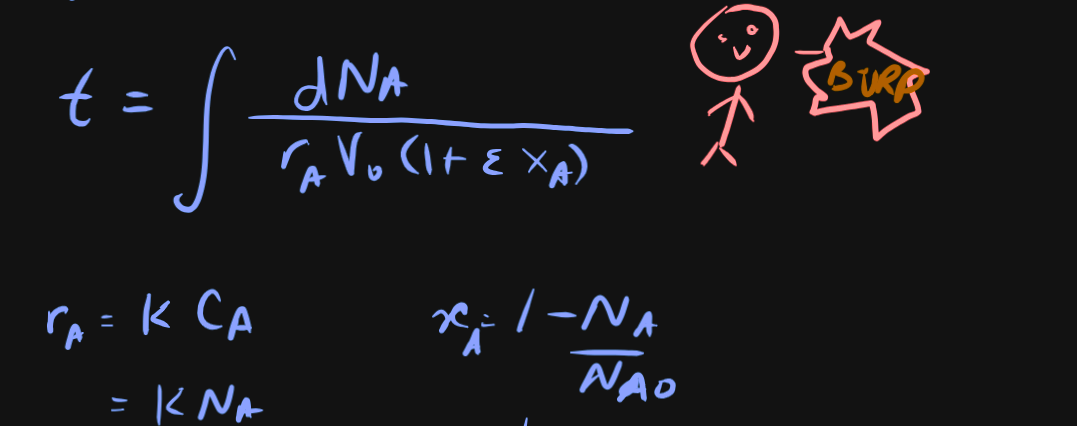 t = ∫ dN_A / r_A V_0 (1 + ε x_A)
BURP
r_A = K C_A
x_A = 1 - N_A / N_A0
= K N_A